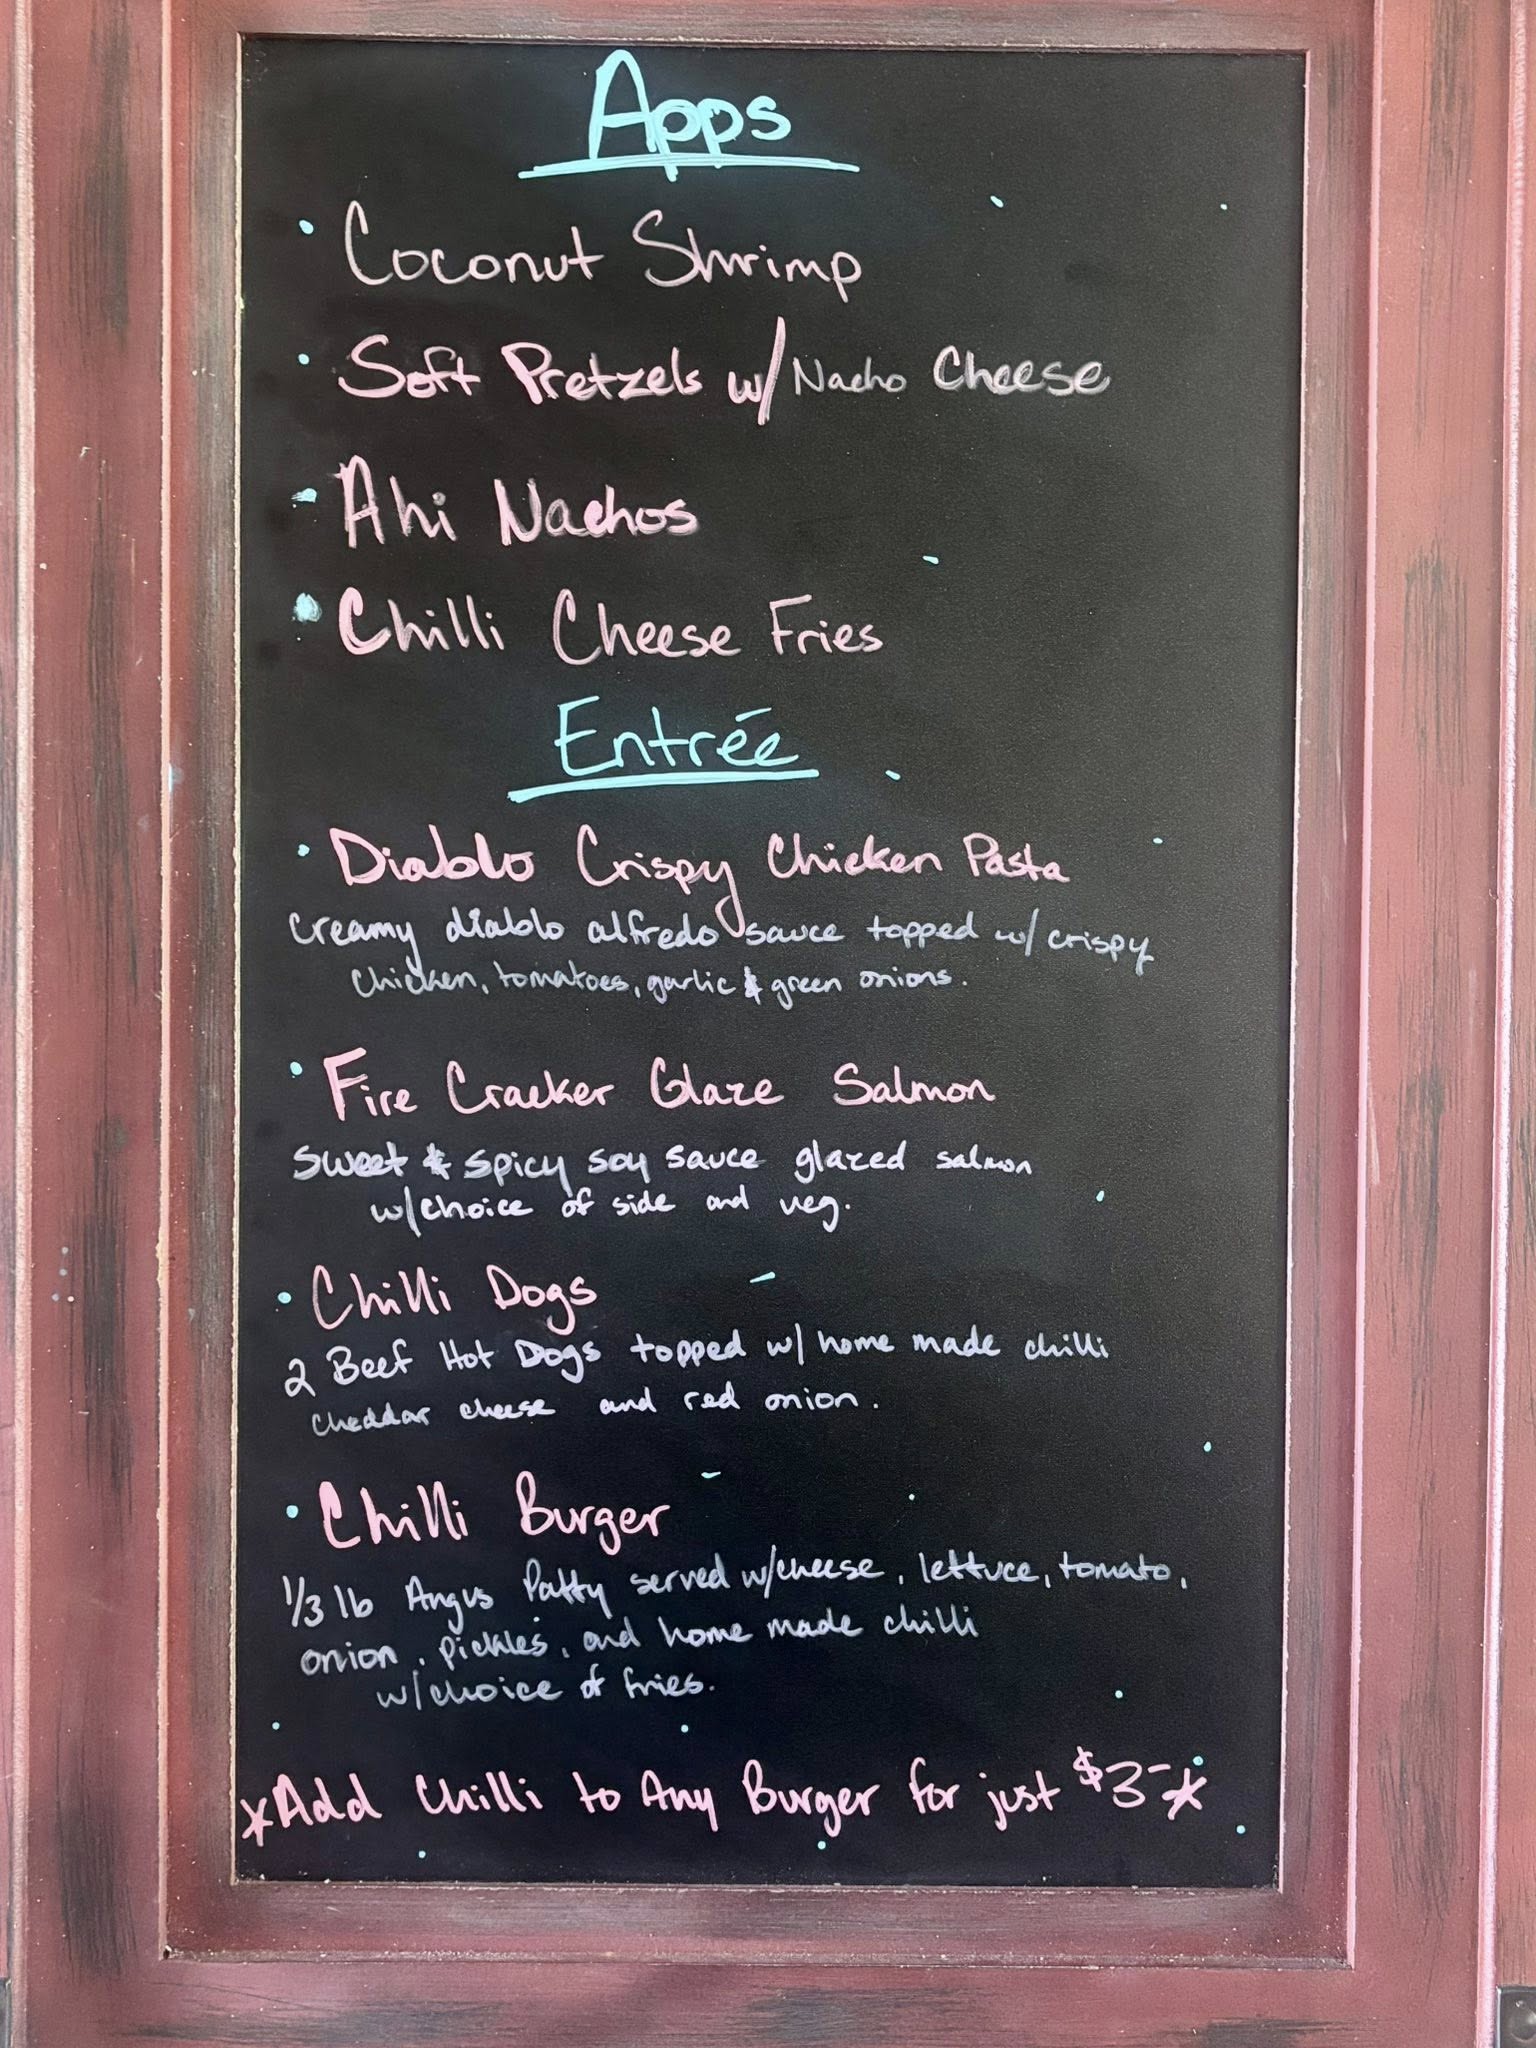 Apps
• Coconut Shrimp
• Soft Pretzels w/ Nacho Cheese
• Ahi Nachos
• Chilli Cheese Fries
Entrée
• Diablo Crispy Chicken Pasta
creamy diablo alfredo sauce topped w/ crispy
chicken, tomatoes, garlic & green onions.
• Fire Cracker Glaze Salmon
sweet & spicy soy sauce glazed salmon
w/choice of side and veg.
• Chilli Dogs
2 Beef Hot Dogs topped w/ home made chilli
cheddar cheese and red onion.
• Chilli Burger
1/3 lb Angus Patty served w/cheese, lettuce, tomato,
onion, pickles, and home made chilli
w/choice of fries.
*Add Chilli to Any Burger for just $3-*